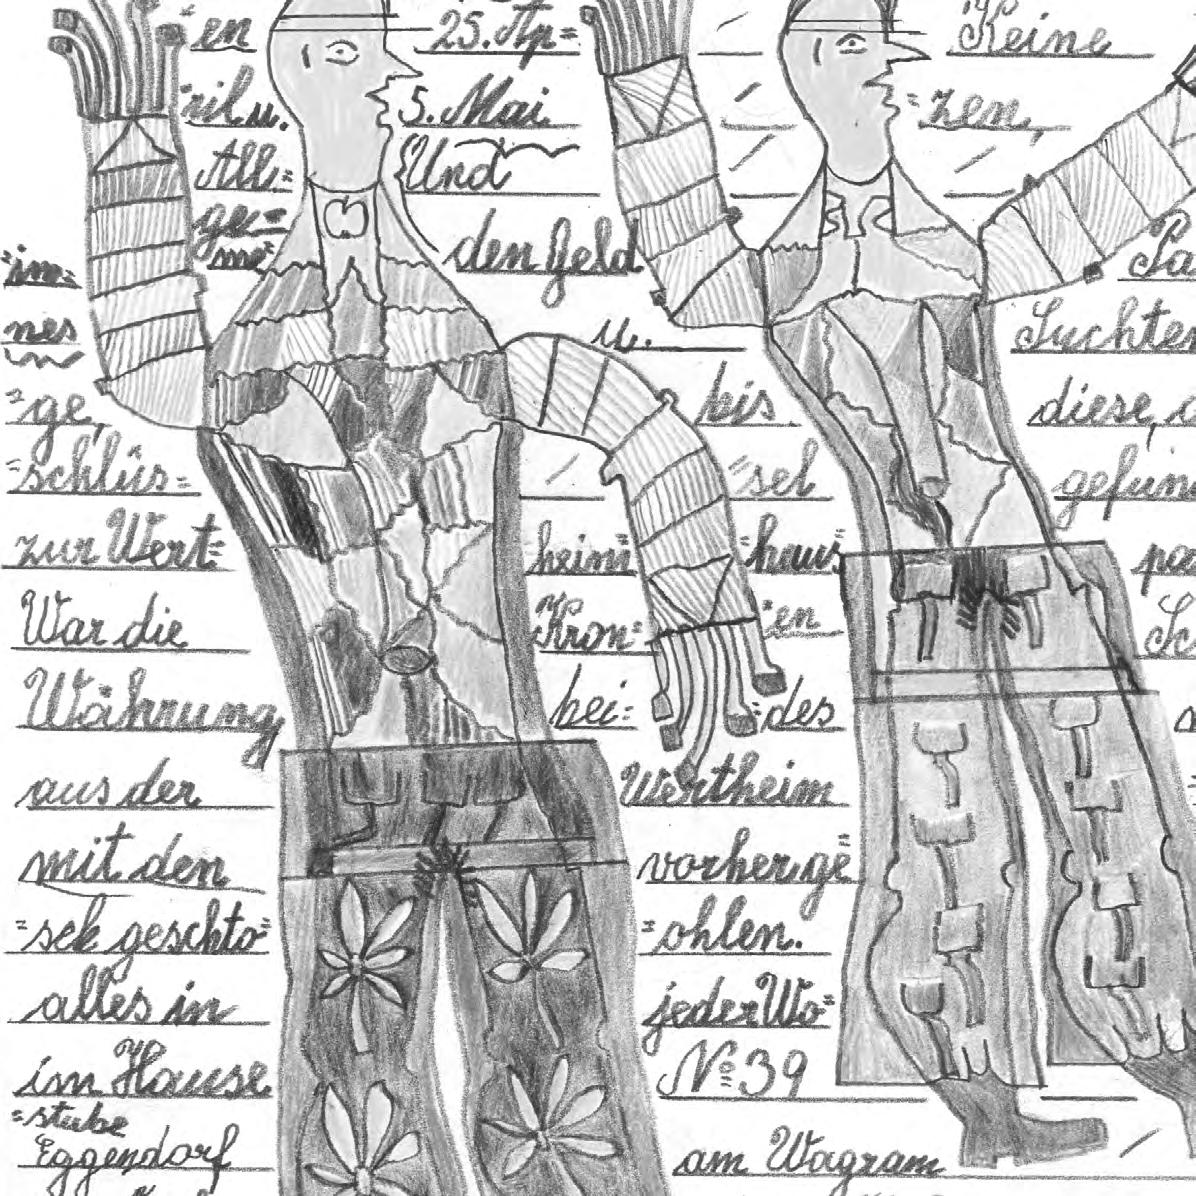 =en 25. Ap= Keine
=ril u. 5. Mai =zen,
All= Und
ge=
=me= den Geld Pa
=im=
nes u. Suchten
=ge, bis diese,
=schlüs= =sel gefun
zur Wert= heim =haus pa
War die Kron= =en Sc
Währung bei= =des
aus der Wertheim
mit den vorherige
=sek geschto= =ohlen.
alles in jeder Wo=
im Hause No 39
=stube
Eggendorf am Wagram